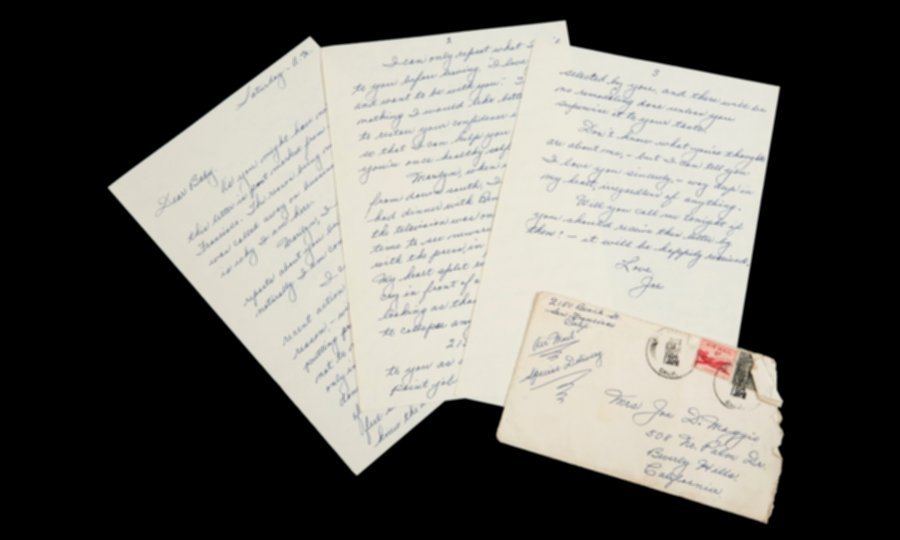 Saturday -
Dear Baby,
As you might have
this letter is post marked from
Francisco. The reason being
was called away on business
is why I am here.
Marilyn, I
reports about you
naturally I am
I
recent action
reason, -
putting
not be
only
2
I can only repeat what I
to you before leaving. "I love
and want to be with you."
nothing I would like
to restore your confidence
so that I can help you
you're once healthy
Marilyn, when
from down south, I
had dinner with
the television was on
time to see
with the press, in
My heart split
cry in front of
looking as tho
to collapse any
to you as
Paint job
3
selected by you, and there will be
no remodeling done unless you
supervise it to your taste.
Don't know what you're thoughts
are about me, - but I can tell you
I love you sincerely - way deep in
my heart, regardless of anything.
Will you call me tonight if
you should receive this letter by
then? - it will be happily received.
Love
Joe
2150 Beach St.
San Francisco
Calif.
Air Mail
Special Delivery
Mrs Joe D. Maggio
508 No. Palm Dr.
Beverly Hills,
California